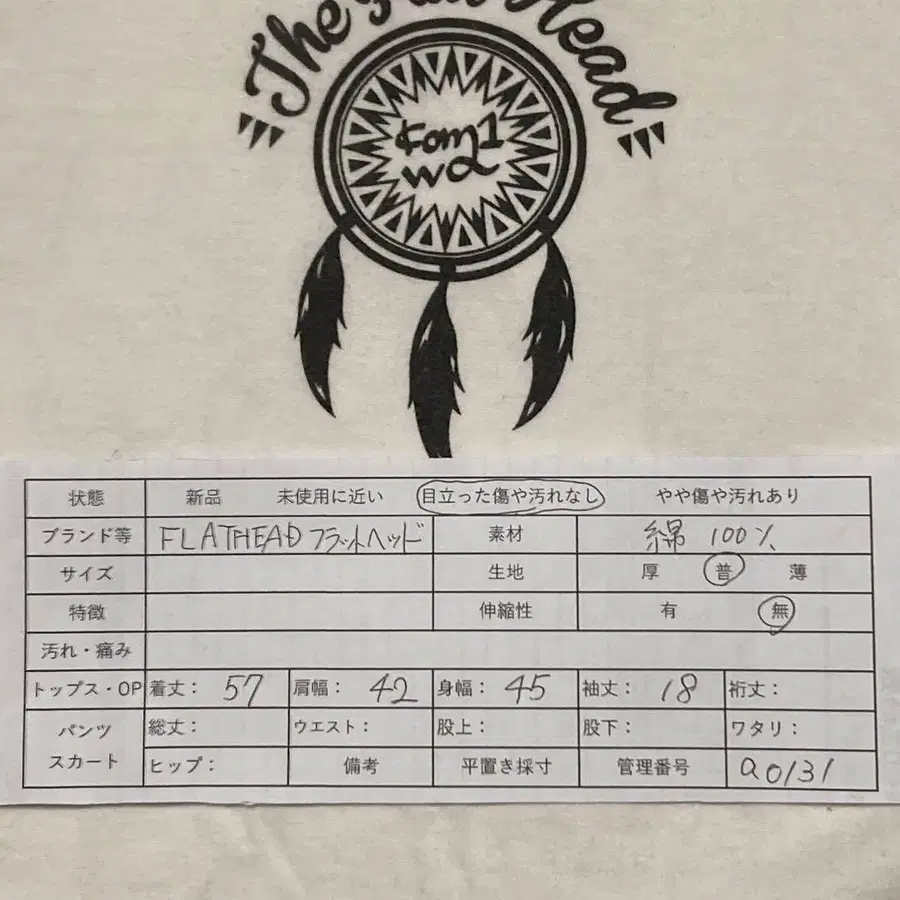 The Flat Head
状態 新品 未使用に近い 目立った傷や汚れなし やや傷や汚れあり
ブランド等 FLATHEAD フラットヘッド 素材 綿 100%
サイズ 生地 厚 普 薄
特徴 伸縮性 有 無
汚れ・痛み
トップス・OP 着丈: 57 肩幅: 42 身幅: 45 袖丈: 18 裄丈:
パンツ 総丈: ウエスト: 股上: 股下: ワタリ:
スカート ヒップ: 備考 平置き採寸 管理番号 a0131